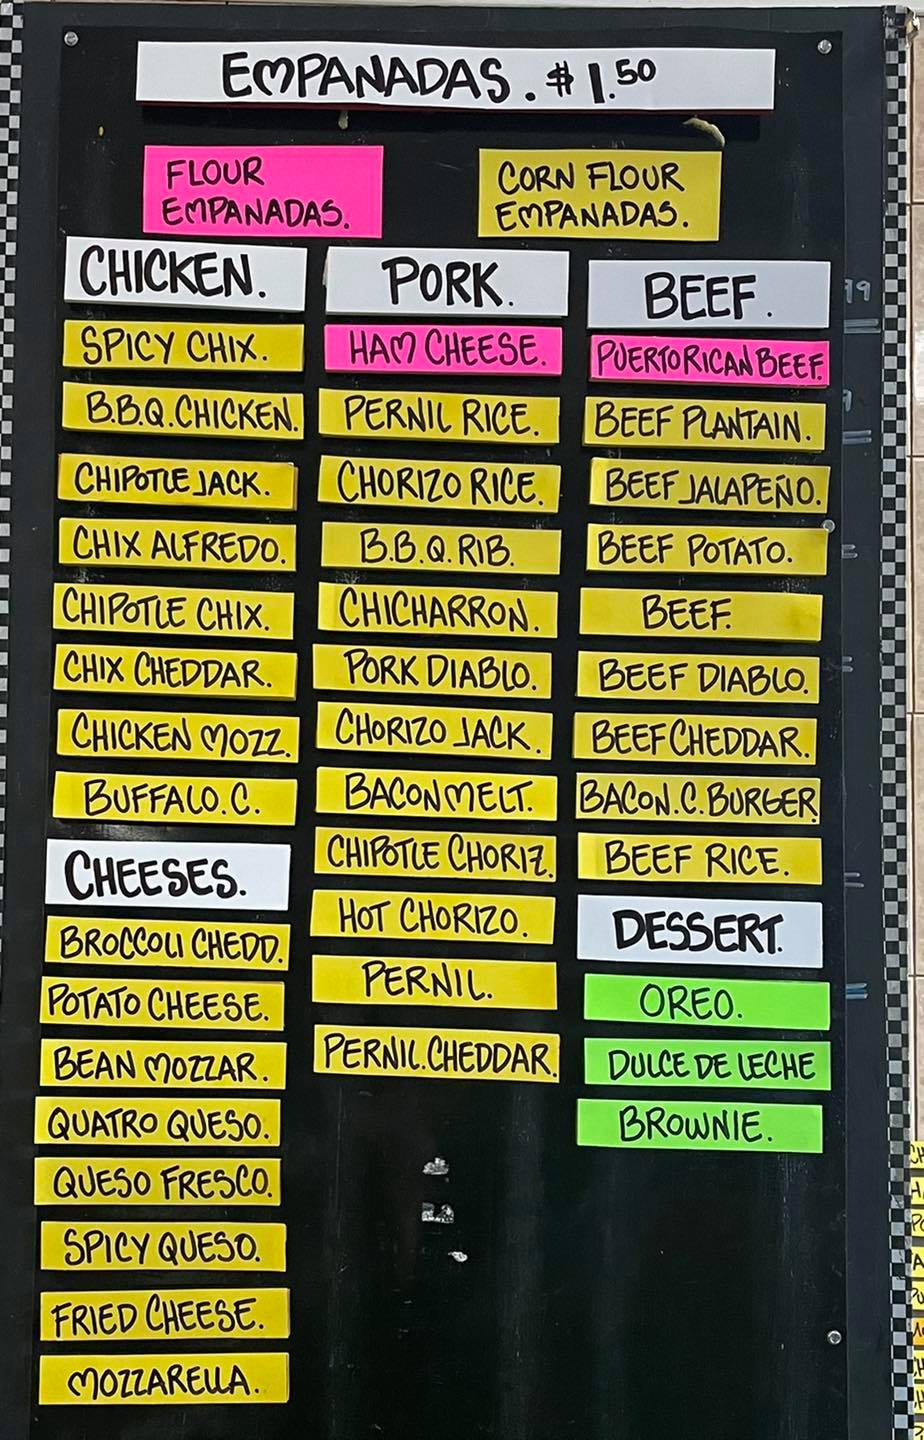 EMPANADAS. $1.50
FLOUR
EMPANADAS.
CORN FLOUR
EMPANADAS.
CHICKEN.
SPICY CHIX.
B.B.Q. CHICKEN.
CHIPOTLE JACK.
CHIX ALFREDO.
CHIPOTLE CHIX.
CHIX CHEDDAR.
CHICKEN MOZZ.
BUFFALO.C.
CHEESES.
BROCCOLI CHEDD.
POTATO CHEESE.
BEAN MOZZAR.
QUATRO QUESO.
QUESO FRESCO.
SPICY QUESO.
FRIED CHEESE.
MOZZARELLA.
PORK.
HAM CHEESE.
PERNIL RICE.
CHORIZO RICE.
B.B.Q. RIB.
CHICHARRON.
PORK DIABLO.
CHORIZO JACK.
BACON MELT.
CHIPOTLE CHORIZ.
HOT CHORIZO.
PERNIL.
PERNIL.CHEDDAR.
BEEF.
PUERTO RICAN BEEF.
BEEF PLANTAIN.
BEEF JALAPEÑO.
BEEF POTATO.
BEEF.
BEEF DIABLO.
BEEF CHEDDAR.
BACON.C.BURGER
BEEF RICE.
DESSERT.
OREO.
DULCE DE LECHE
BROWNIE.